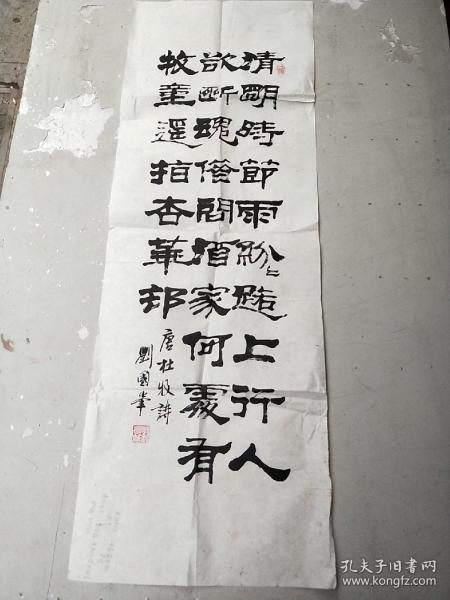 清朙時節雨紛〻路上行人
欲斷魂借問酒家何處有
牧童遙指杏華邨
唐杜牧詩
劉國
孔夫子旧书网
www.kongfz.com